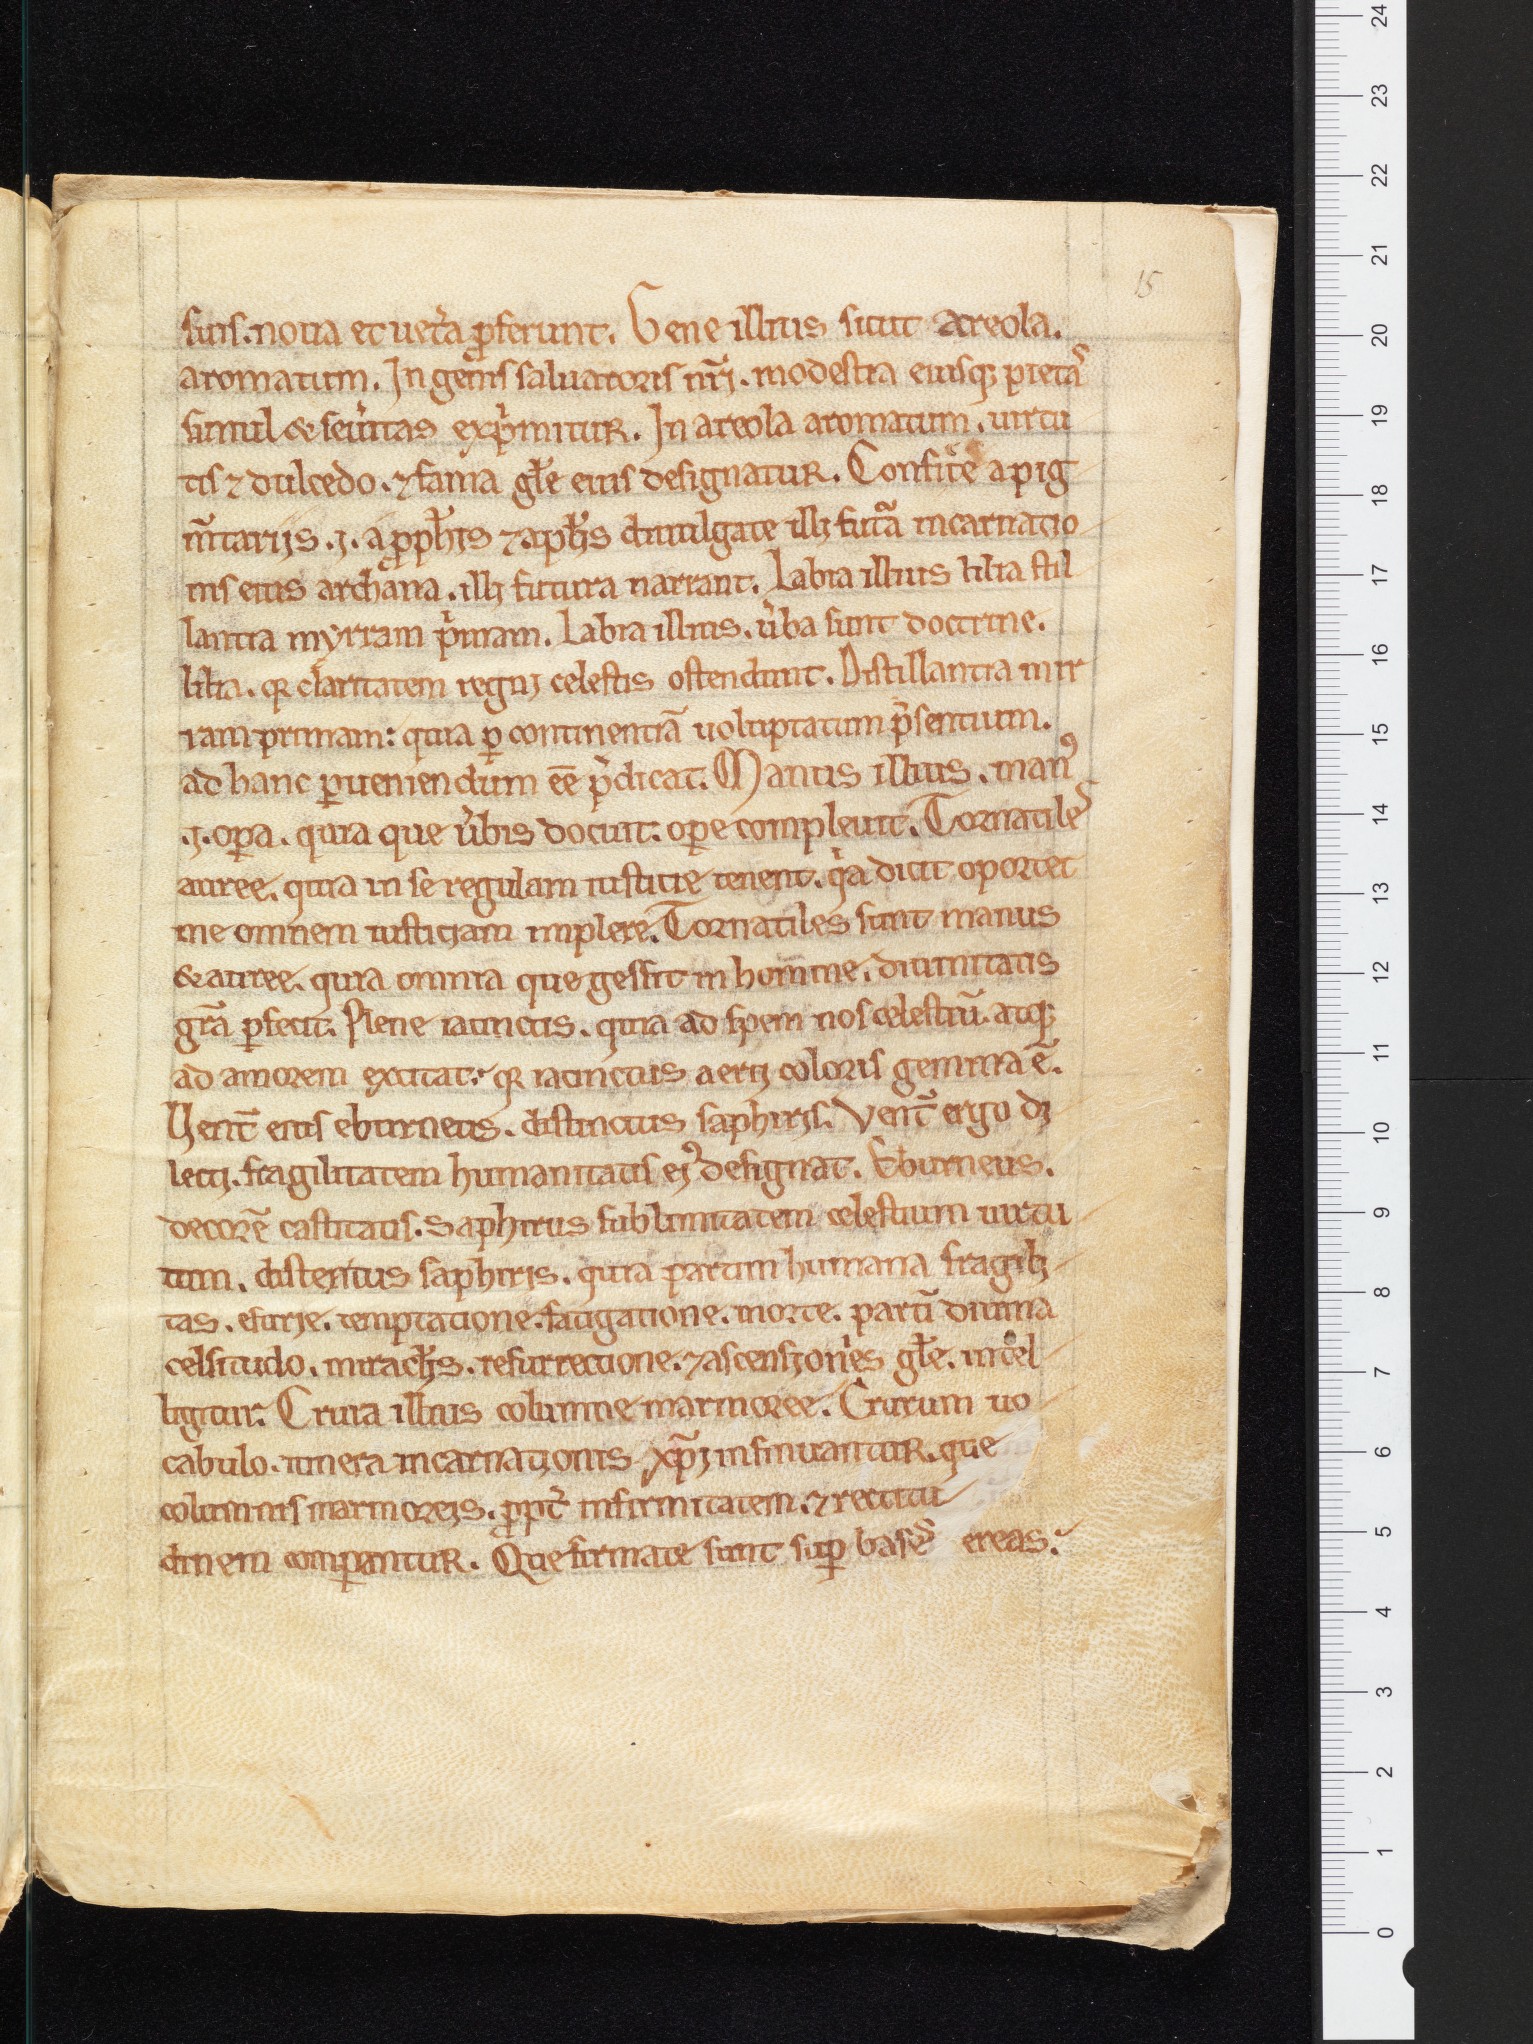 15
suis. noua et uet̛a ꝓferunt. Gene illius sicut areola.
aromatum. In genis saluatoris nr̄j. modestia eiusqꝫ pieta̾s
simul & seu̾itas exp̾mitur. In areola aromatum. uirtu
tis ⁊ dulcedo. ⁊ fama gl̄e eius designatur. Consite̾ a pig
m̄tarijs. .j. a ꝓph̄is ⁊ apl̄is diuulgate illj futā incarnatio
nis eius archana. illj futura narrant. Labia illius lilia stil
lantia myrram p̾mam. Labia illius. u̾ba sunt doctrine.
lilia. qꝛ claritatem regnj celestis ostendunt. Distillantia mir
ram primam: quia ꝑ continentiā uoluptatum p̾sentium.
ad hanc ꝑueniendum eē p̾dicat. Manus illius. manꝰ
.j. oꝑa. quia que u̾bis docuit. oꝑe compleuit. Tornatiles
auree. quia in se regulam iusticie tenent. q̾a dicit oportet
me omnem iusticjam implere. Tornatiles sunt manus
& auree. quia omnia que gessit in homine. diuinitatis
gr̄a ꝑfecit. Plene iacinctis. quia ad spem nos celestiū. atqꝫ
ad amorem excitat. qꝛ iacinctus aerij coloris gemma ē.
Uent̄ eius eburneus. distinctus saphirjs. Vent̄ ergo dj
lectj. fragilitatem humanitatis ejꝰ designat. Eburneus.
decorē castitatis. Saphirus sublimitatem celestium uirtu
tum. distenctus saphiris. quia partim humana fragilj
tas. esurje. temptatione. fatigatione. morte. partī diuina
celsitudo. miracl̄is. resurrectione. ⁊ ascensjonis gl̄e. intel
ligitur. Crura illius columne marmoree. Crurum uo
cabulo. itinera incarnatjonis xp̄j insinuantur. que
columnis marmorejs. ꝓpt̾ infirmitatem. ⁊ rectitu
dinem comꝑantur. Que firmate sunt suꝑ base̾s ereas.